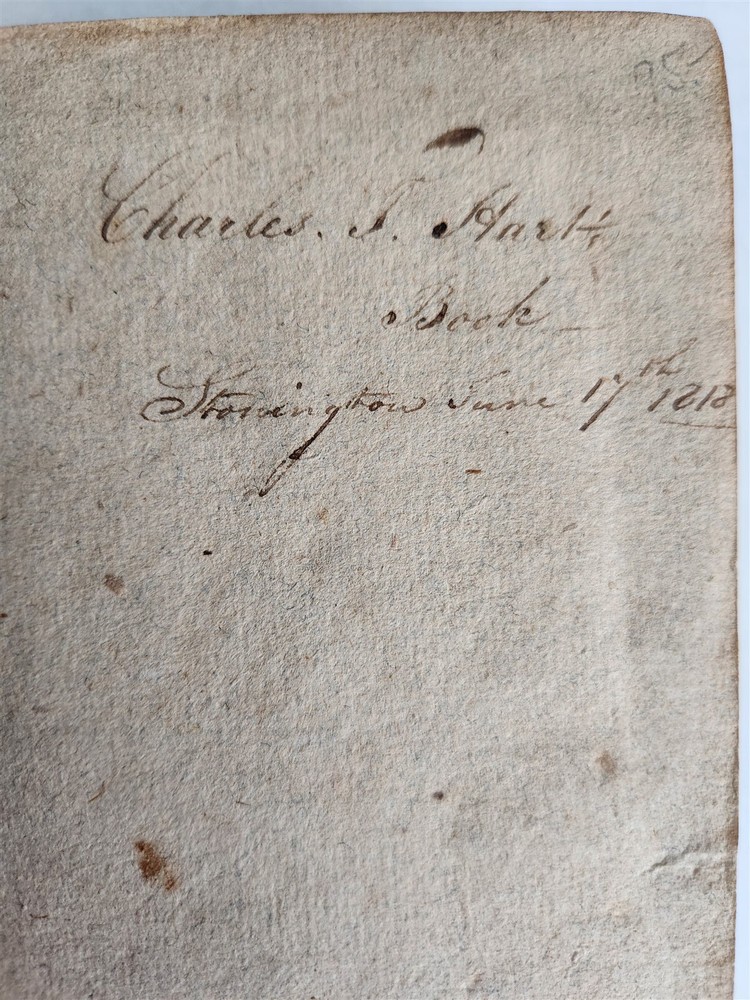 Charles. S. Hart's
Book
Stonington June 17th 1818